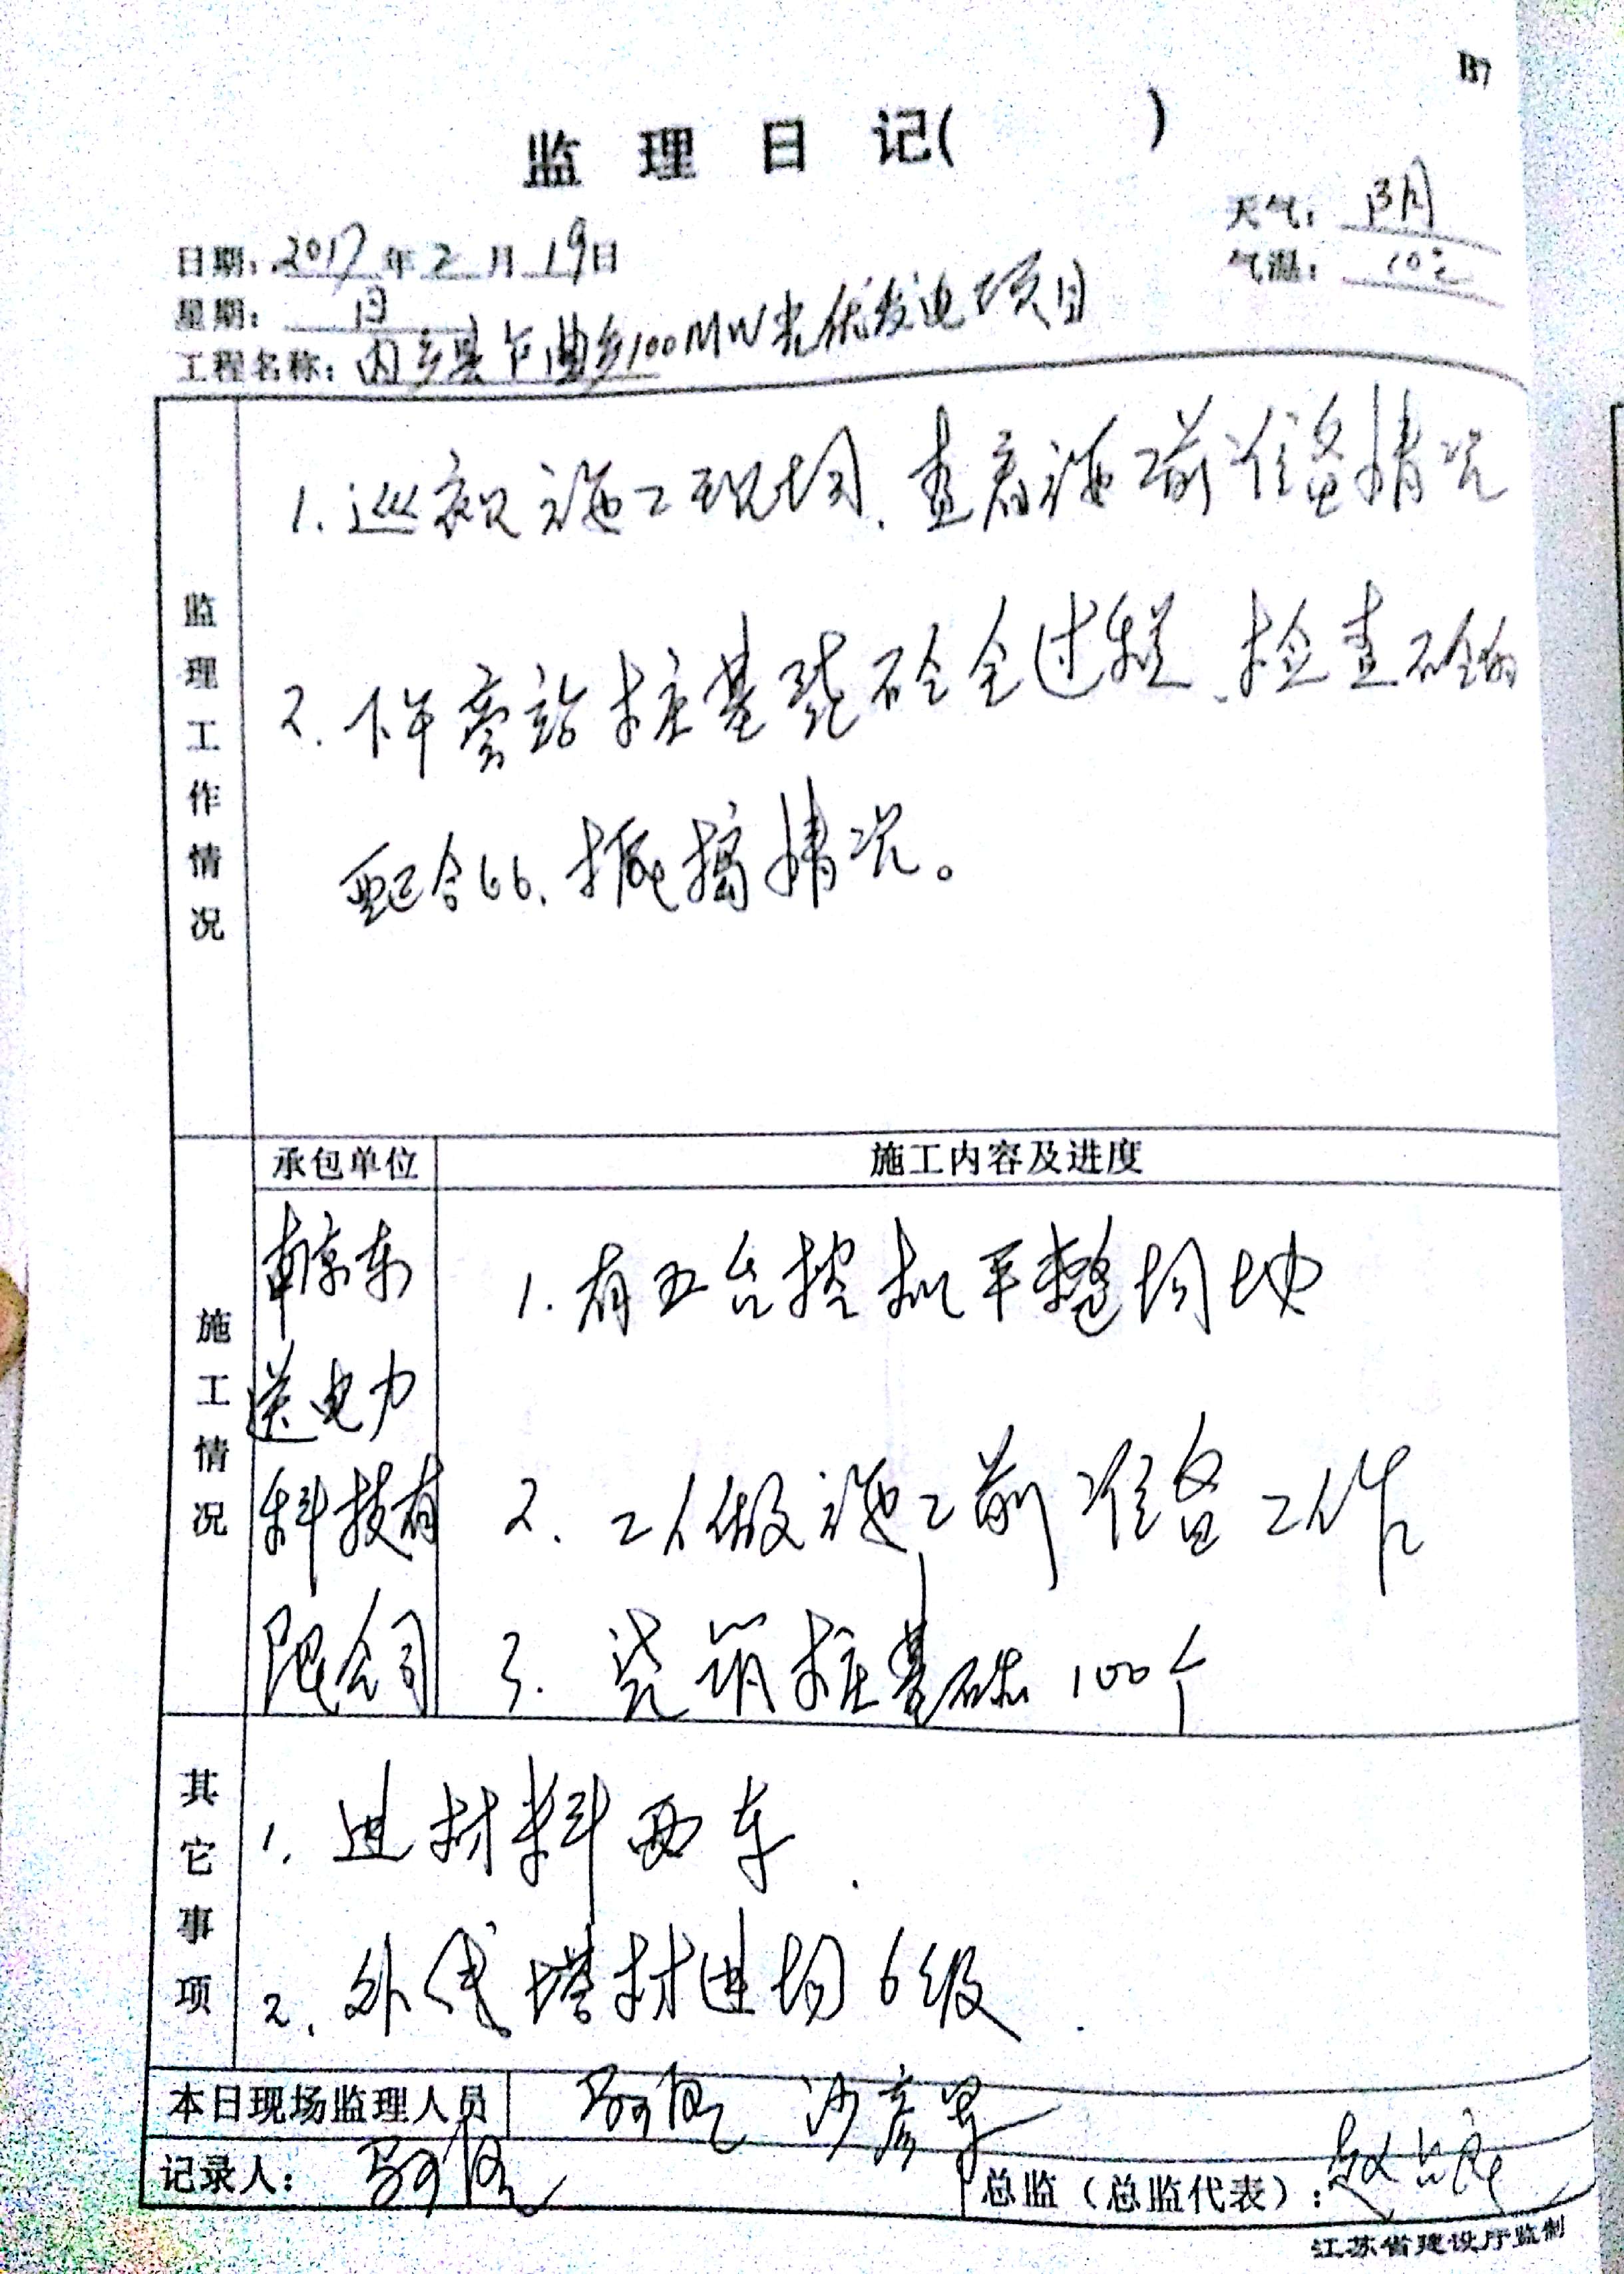 B7
监 理 日 记( )
天气: 阴
日期: 2017 年 2 月 19日
气温: 10℃
星期: 日
工程名称: 内乡县乍曲乡100MW光伏发电项目
监理工作情况
1. 巡视施工现场、查看施工前准备情况
2. 下午旁站桩基砼全过程、检查砼的
配合比、振捣情况。
施工情况
承包单位
施工内容及进度
南京东
送电力
科技有
限公司
1. 有五台挖机平整场地
2. 工人做施工前准备工作
3. 浇筑桩基础 100个
其它事项
1. 进材料两车.
2. 外线塔材进场6级.
本日现场监理人员
沙彦
记录人:
总监(总监代表): 赵
江苏省建设厅监制